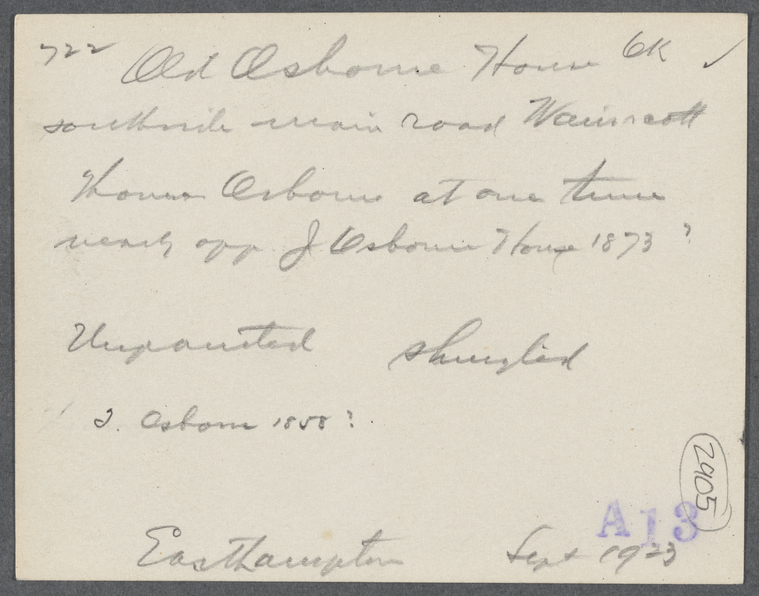 722 Old Osborne House OK ✓
southside main road Wainscott
Osborne at one time
nearly opp J Osborne House 1873 ?
Unpainted shingled
J. Osborne 1858 ?
2905
A13
Easthampton Sept 1923